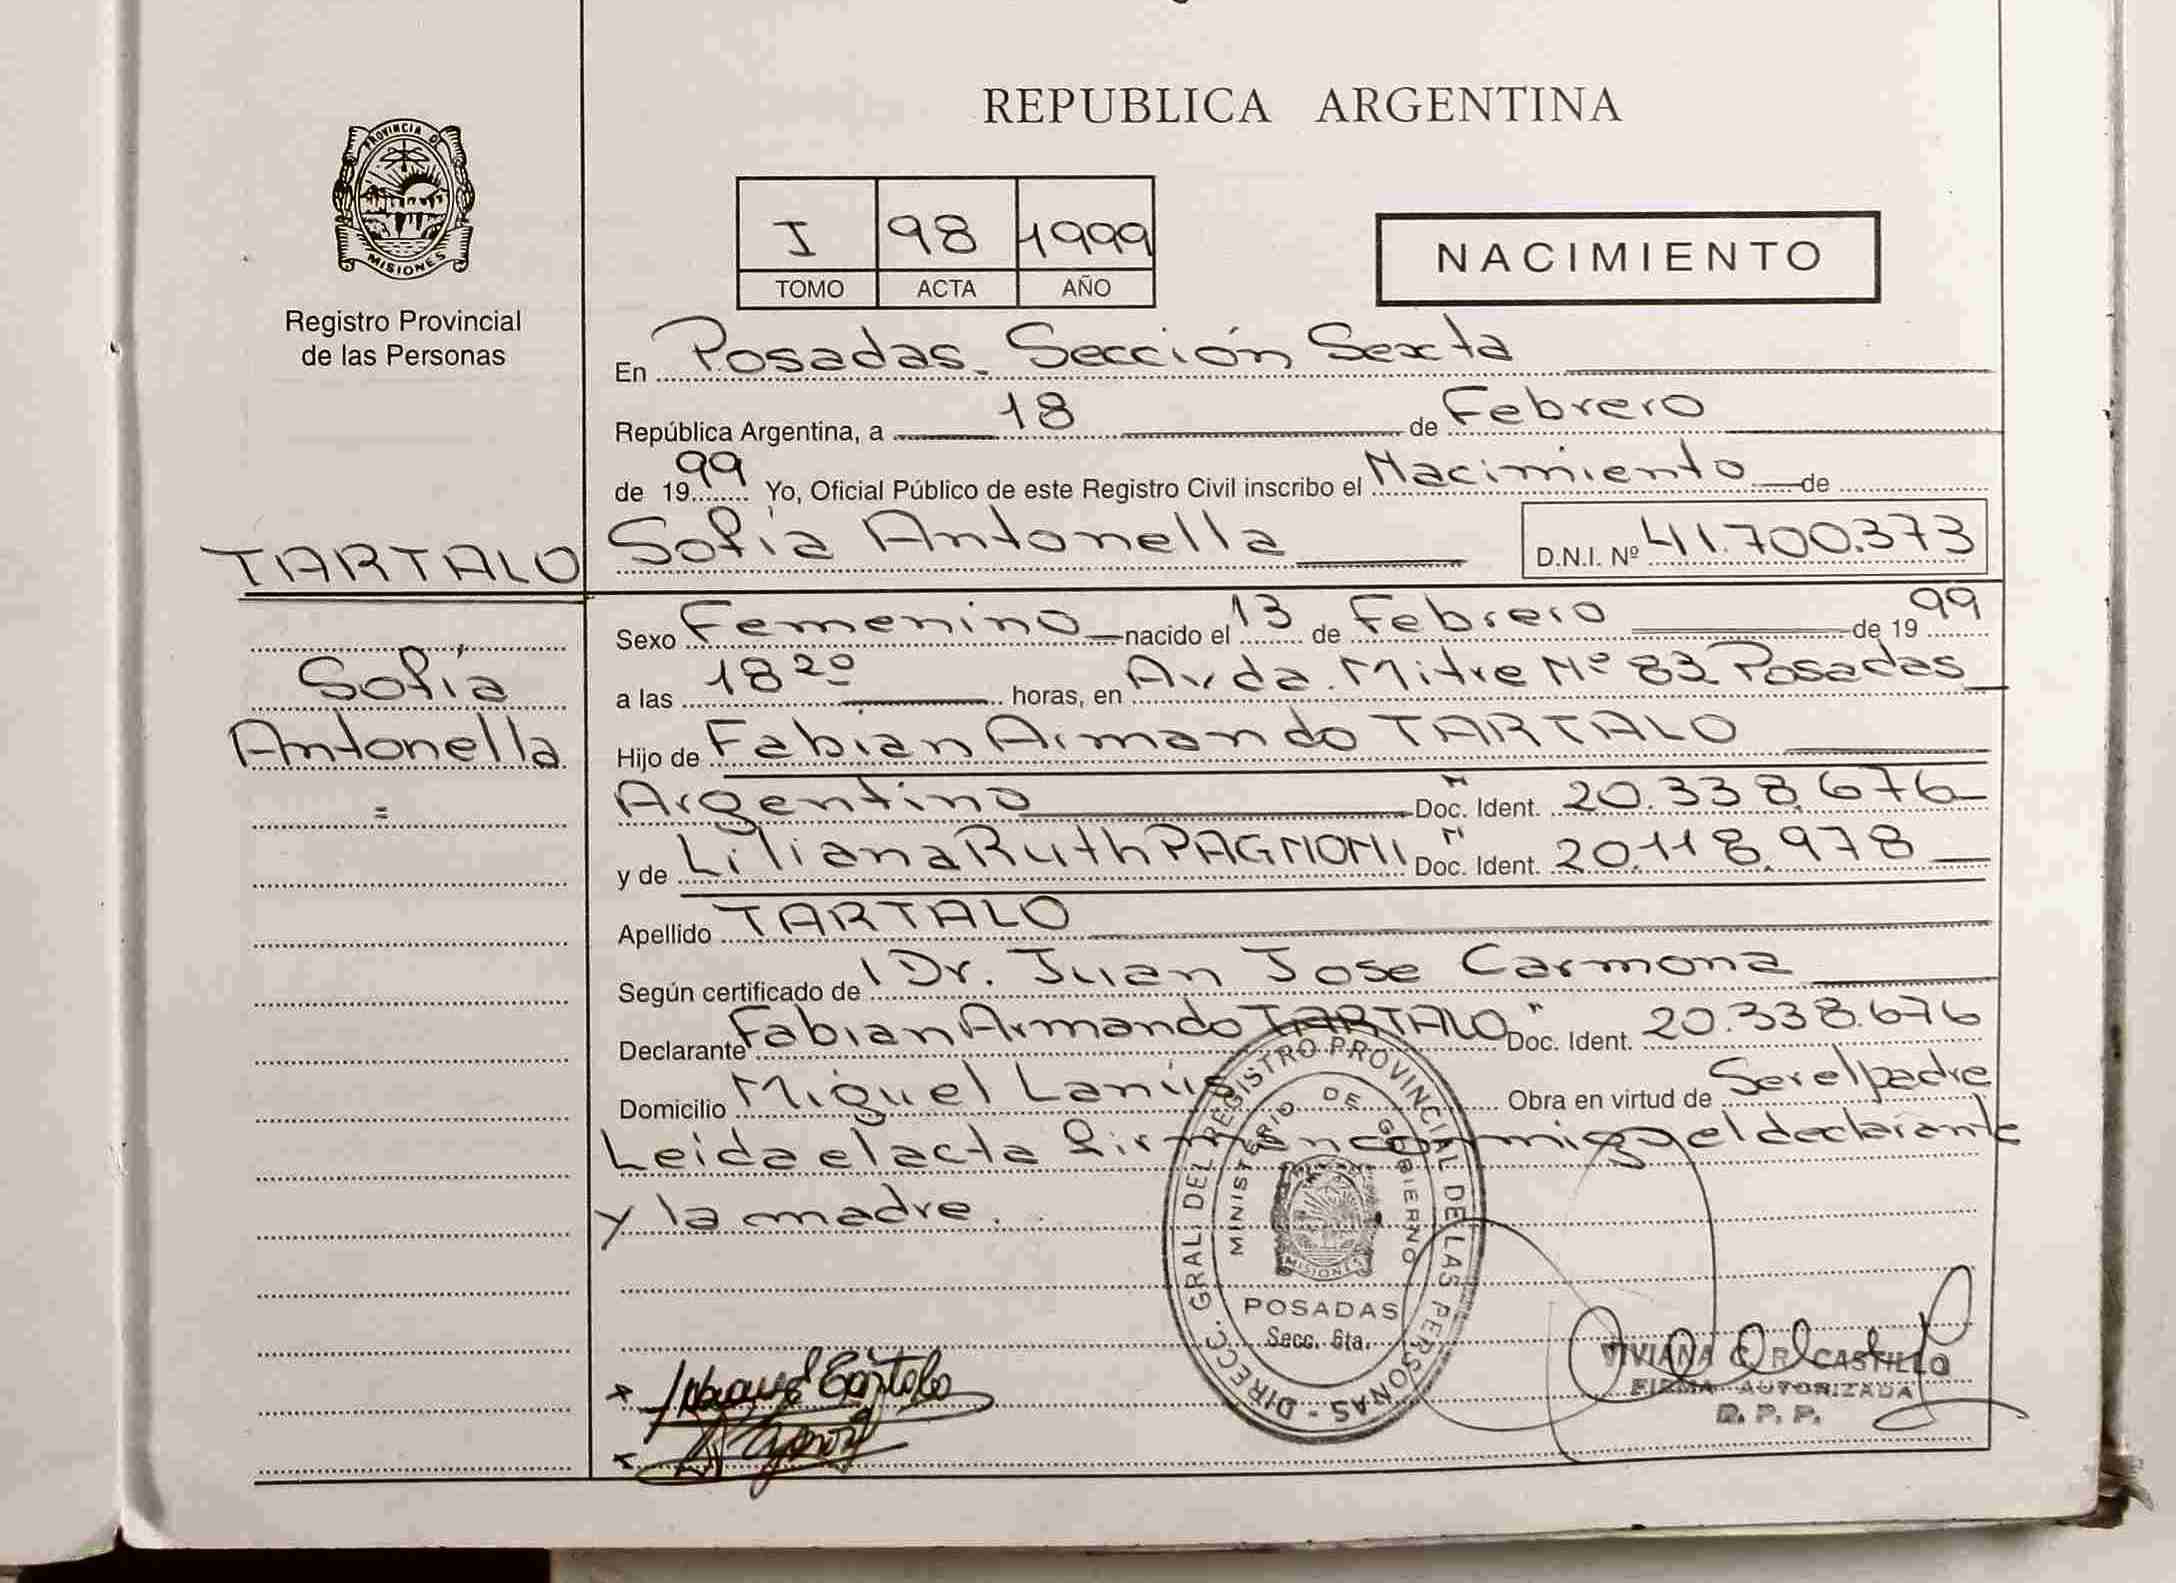 REPUBLICA ARGENTINA
PROVINCIA DE
MISIONES
Registro Provincial
de las Personas
I 98 1999
TOMO ACTA AÑO
NACIMIENTO
En Posadas. Sección Sexta
República Argentina, a 18 de Febrero
de 1999 Yo, Oficial Público de este Registro Civil inscribo el Nacimiento de
TARTALO Sofía Antonella D.N.I. Nº 41.700.373
Sofía
Antonella
=
Sexo Femenino nacido el 13 de Febrero de 1999
a las 18 20 horas, en Avda. Mitre Nº 82 Posadas
Hijo de Fabian Armando TARTALO
Argentino Doc. Ident. 20.338.676
y de Liliana Ruth PAGNONI Doc. Ident. 20.118.978
Apellido TARTALO
Según certificado de Dr. Juan Jose Carmona
Declarante Fabian Armando TARTALO Doc. Ident. 20.338.676
Domicilio Miguel Lanús Obra en virtud de Ser el padre
Leida el acta firman conmigo el declarante
y la madre.
DIRECC. GRAL. DEL REGISTRO PROVINCIAL DE LAS PERSONAS -
MINISTERIO DE GOBIERNO
MISIONES
POSADAS
Secc. 6ta.
VIVIANA C. R. CASTILLO
FIRMA AUTORIZADA
R. P. P.